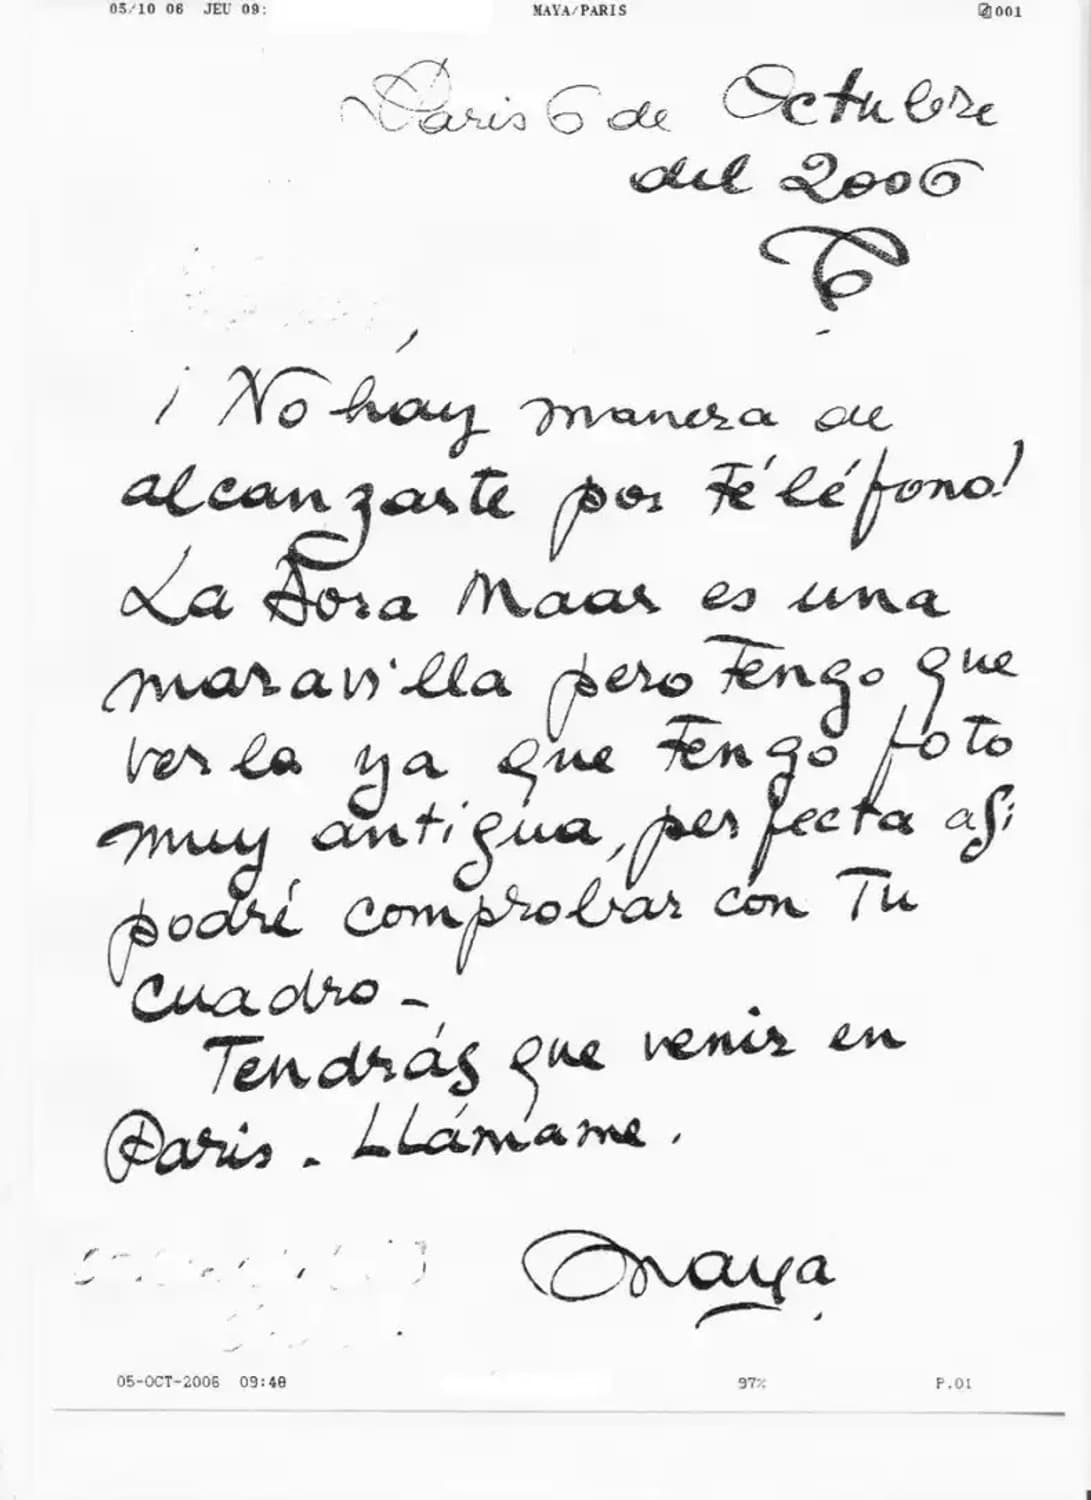 05/10 06 JEU 09:
MAYA/PARIS
001
Paris 6 de Octubre
del 2006
¡No hay manera de
alcanzarte por Téléfono!
La Dora Maar es una
maravilla pero Tengo que
verla ya que Tengo foto
muy antigua, perfecta asi
podré comprobar con Tu
cuadro -
Tendrás que venir en
Paris. LLámame.
Maya
05-OCT-2006 09:40
97%
P.01